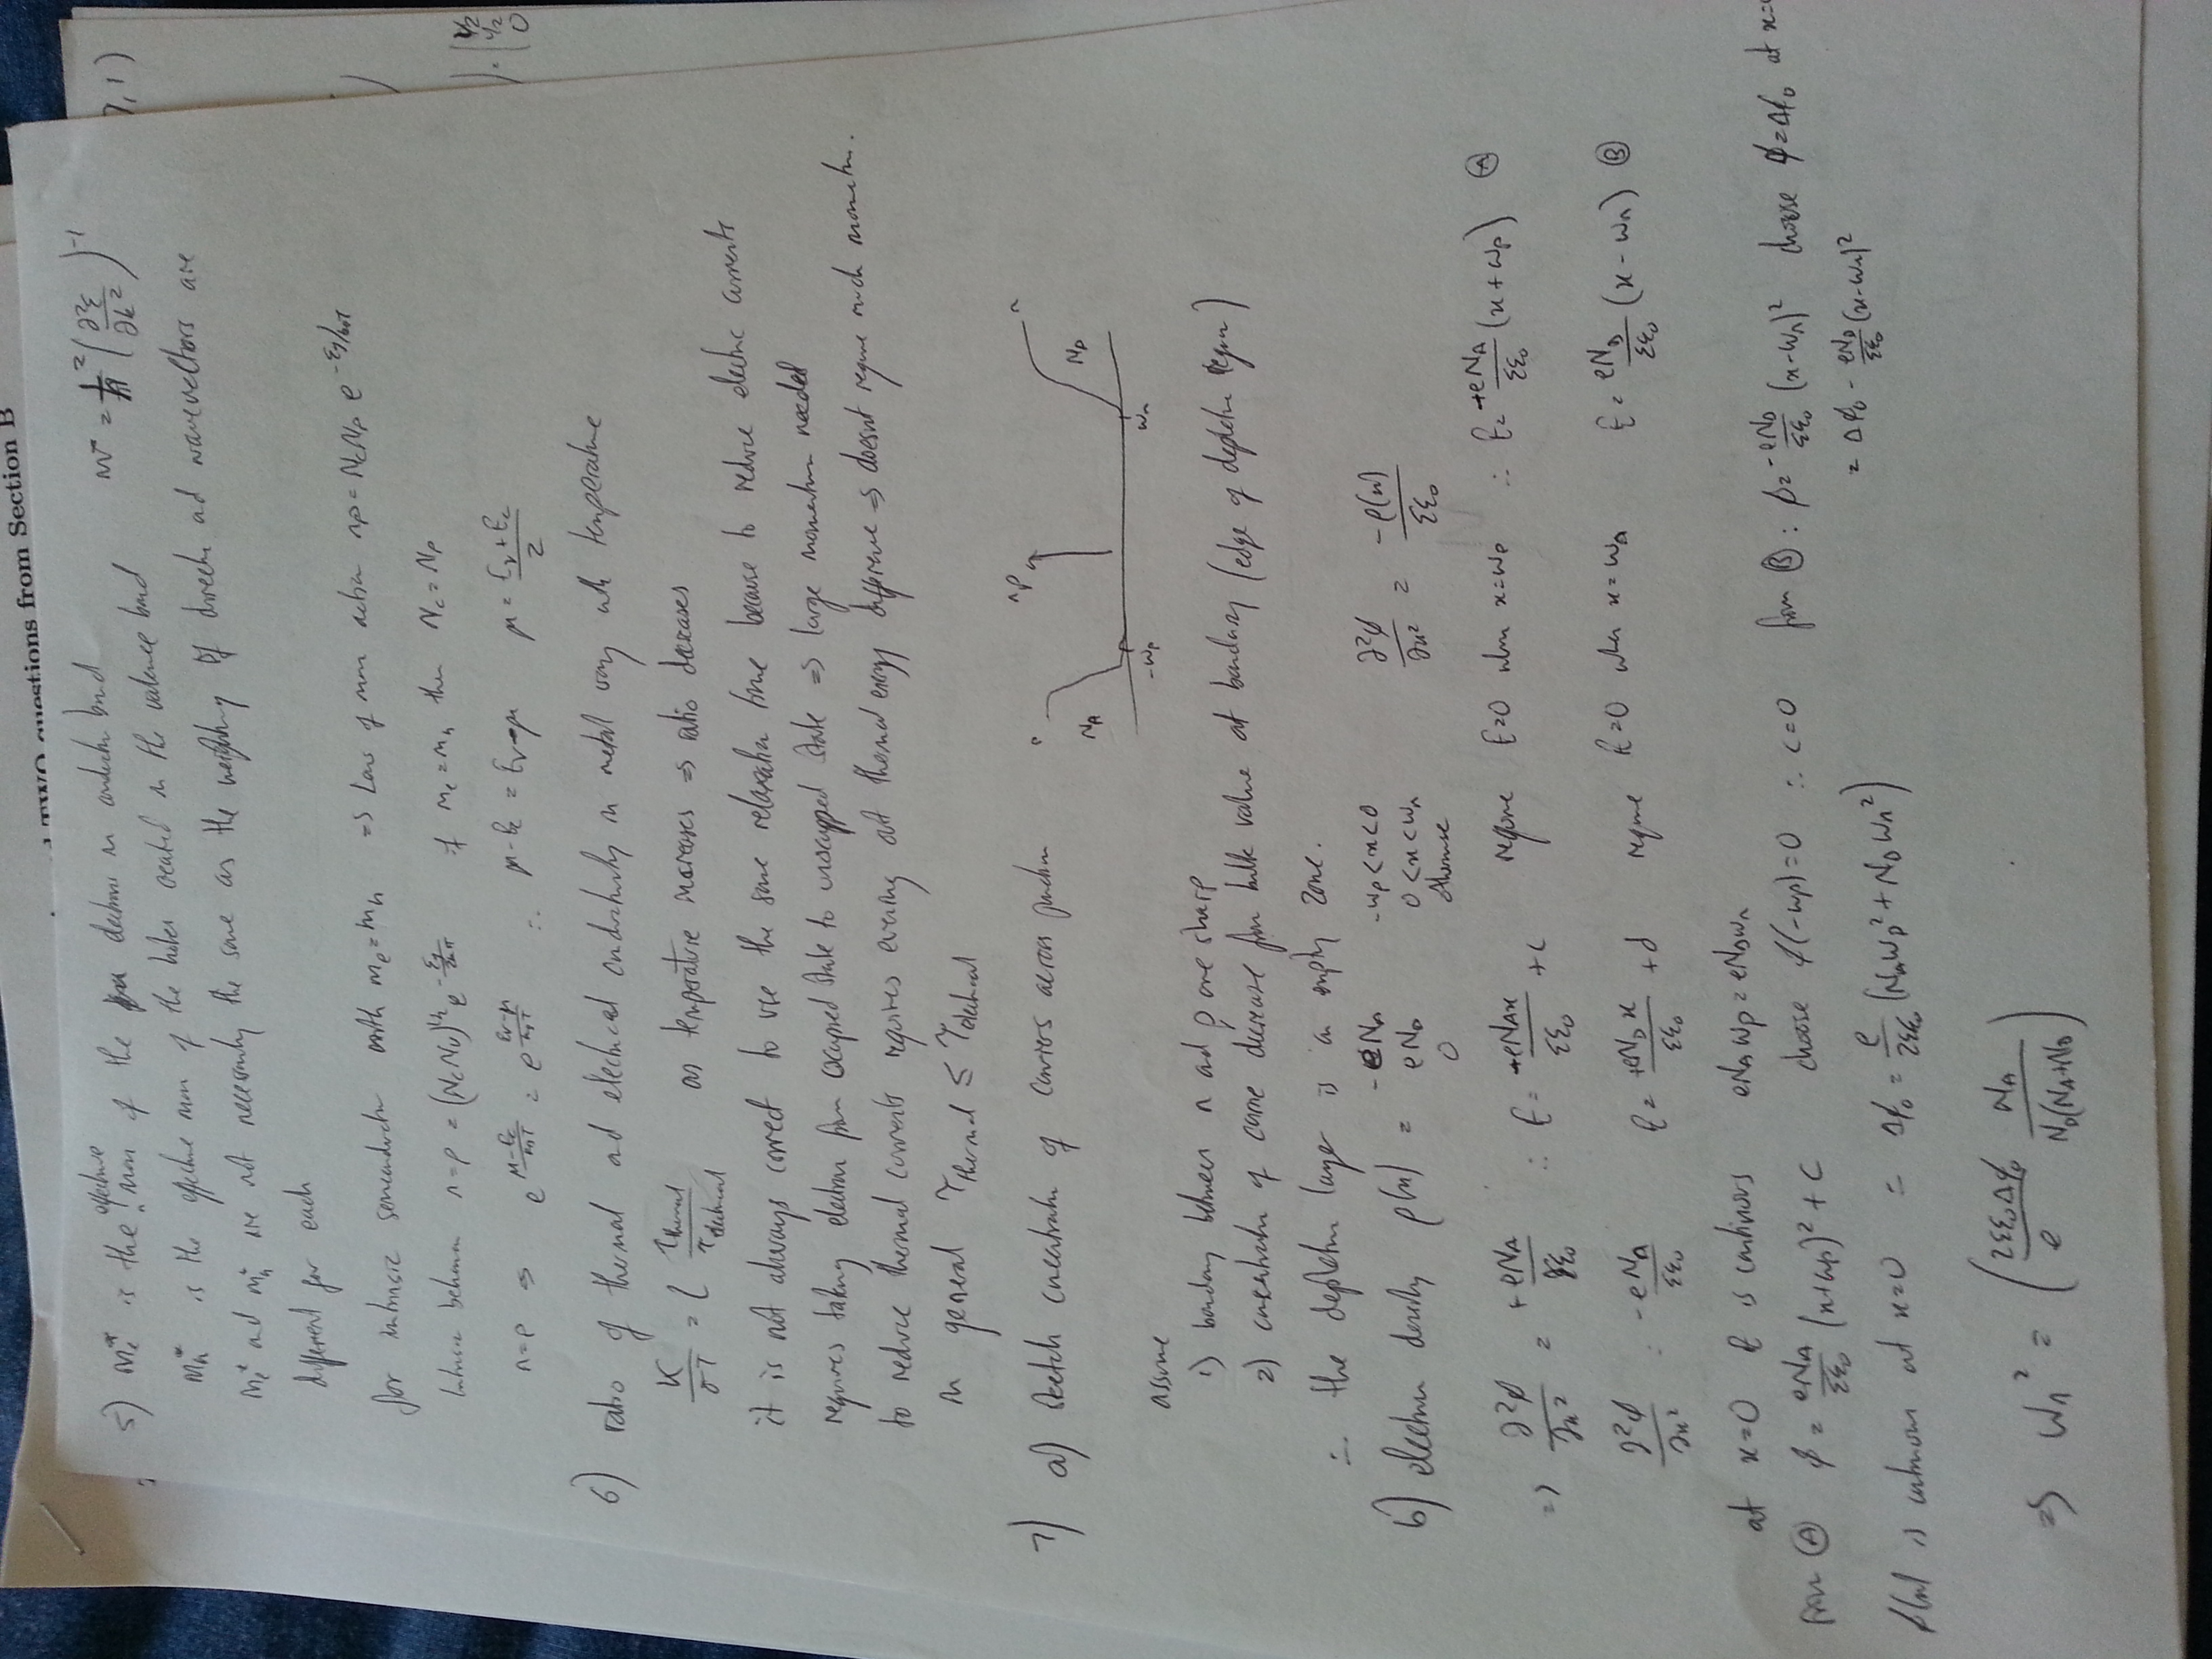 TWO questions from Section B
5) mₑ* is the effective mass of the electrons in conduction band m* = ħ² (∂²ε/∂k²)⁻¹
mₕ* is the effective mass of the holes created in the valence band
mₑ* and mₕ* are not necessarily the same as the weighting of direction and wavevectors are
different for each
for intrinsic semiconductor with mₑ = mₕ ⇒ Law of mass action np = N_c N_p e^(-εg/k_BT)
Intrinsic behaviour n = p = (N_c N_v)^(1/2) e^(-εg/2k_BT) if mₑ = mₕ then N_c = N_p
n = p ⇒ e^((μ-E_c)/k_BT) = e^((E_v-μ)/k_BT) ∴ μ - E_c = E_v - μ μ = (E_v + E_c)/2
6) ratio of thermal and electrical conductivity in metal vary with temperature
K/σT = L τ_thermal/τ_electrical as temperature increases ⇒ ratio decreases
it is not always correct to use the same relaxation time because to reduce electric currents
requires taking electron from occupied state to unoccupied state ⇒ large momentum needed
to reduce thermal currents requires evening out thermal energy difference ⇒ doesnt require much momentum.
in general τ_thermal ≤ τ_electrical
7) a) sketch concentration of carriers across junction
p np n
N_A N_D
-w_p w_n
assume
1) boundary between n and p are sharp
2) concentration of carrie decrease from bulk value at boundary (edge of depletion region)
∴ the depletion layer is an empty zone.
b) electron density ρ(x) = -eN_A -w_p < x < 0 ∂²φ/∂x² = -ρ(x)/εε₀
eN_D 0 < x < w_n
0 otherwise
⇒ ∂²φ/∂x² = +eN_A/εε₀ ∴ E = +eN_A x/εε₀ + c require E=0 when x=w_p ∴ E = +eN_A/εε₀ (x + w_p) Ⓐ
∂²φ/∂x² = -eN_A/εε₀ E = +eN_D x/εε₀ + d require E=0 when x=w_n E = eN_D/εε₀ (x - w_n) Ⓑ
at x=0 E is continuous eN_A w_p = eN_D w_n
from Ⓐ φ = eN_A/εε₀ (x+w_p)² + C choose φ(-w_p)=0 ∴ c=0 from Ⓑ: φ = -eN_D/εε₀ (x-w_n)² choose φ=Δφ₀ at x=
= Δφ₀ - eN_D/εε₀ (x-w_n)²
φ(x) is continuous at x=0 ∴ Δφ₀ = e/2εε₀ (N_A w_p² + N_D w_n²)
⇒ w_n² = (2εε₀Δφ₀/e N_A/N_D(N_A+N_D))
, 1)
) = (1/2
1/2
0